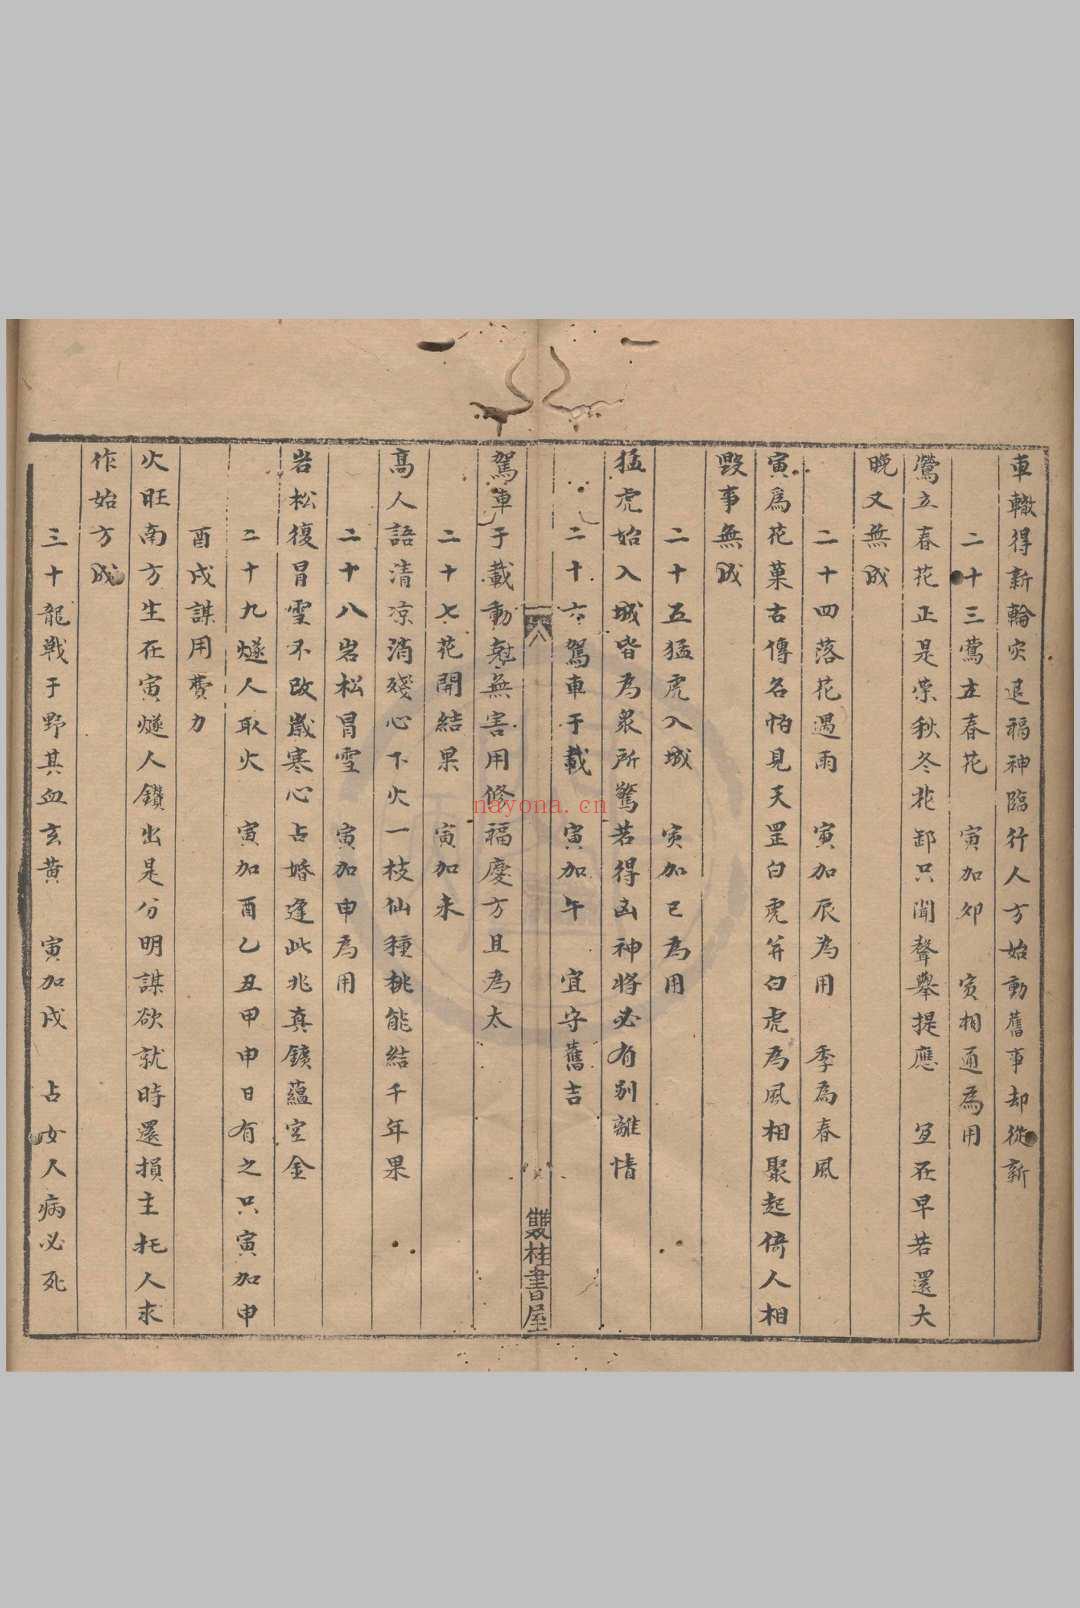 車轍得新輪灾退福神臨行人方始動舊事却從新
二十三鶯立春花　寅加卯　寅相通為用
鶯立春花正是荣秋冬花卸只聞聲舉提應　宜在早若還大
晚又無成
二十四落花遇雨　寅加辰為用　季為春風
寅爲花菓古傳名怕見天罡白虎并白虎為風相聚起倚人相
毀事無成
二十五猛虎入城　寅加巳為用
猛虎始入城皆為衆所驚若得凶神将必有别離情
二十六駕車于載　寅加午　宜守舊吉
八
雙桂書屋
駕車于載動無害用修福慶方且為太
二十七花開結果　寅加未
髙人語清凉消殘心下火一枝仙種桃能結千年果
二十八岩松冒雪　寅加申為用
岩松復冒雪不改嵗寒心占婚逢此兆真鑛蘊宝金
二十九燧人取火　寅加酉乙丑甲申日有之只寅加申
酉戌謀用費力
火旺南方生在寅燧人鑽出是分明謀欲就時還損主托人求
作始方成
三十龍戦于野其血玄黄　寅加戌　占女人病必死
nayona.cn